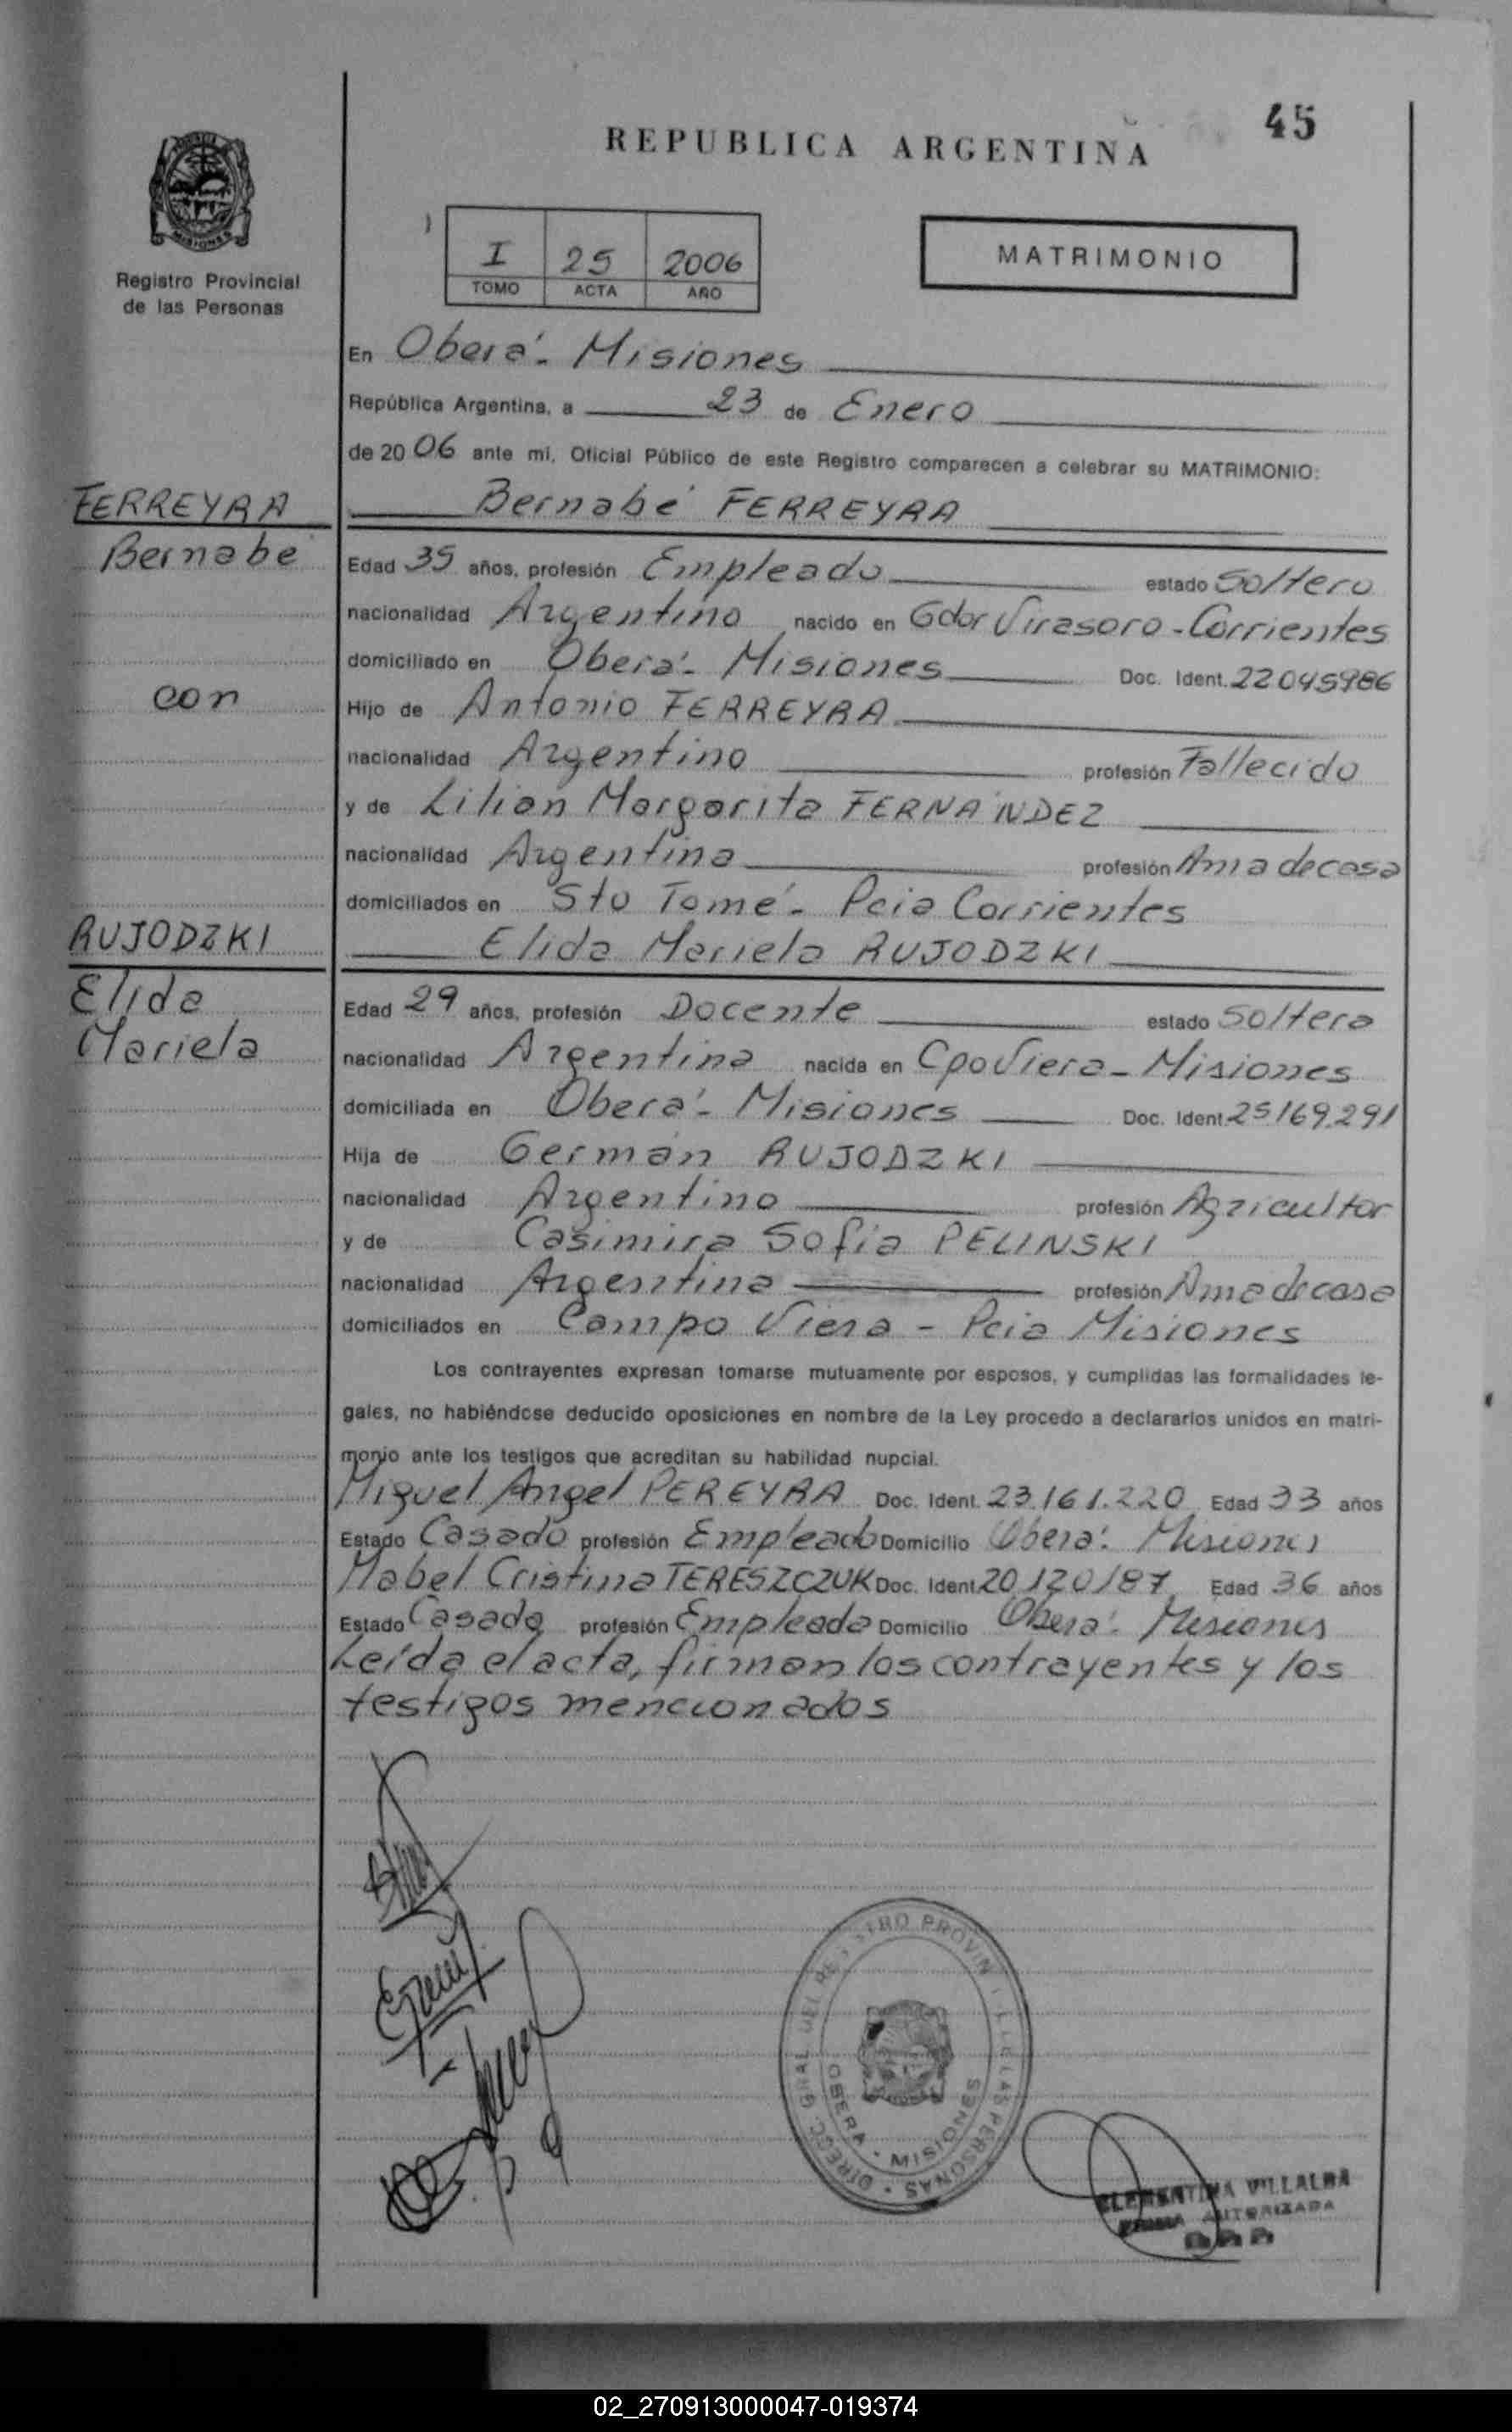 45
REPUBLICA ARGENTINA
MISIONES
Registro Provincial
de las Personas
I 25 2006
TOMO ACTA AÑO
MATRIMONIO
En Oberá - Misiones
República Argentina, a 23 de Enero
de 2006 ante mi, Oficial Público de este Registro comparecen a celebrar su MATRIMONIO:
FERREYRA
Bernabé
con
RUJODZKI
Elida
Mariela
Bernabé FERREYRA
Edad 35 años, profesión Empleado estado Soltero
nacionalidad Argentino nacido en Gdor Virasoro - Corrientes
domiciliado en Oberá - Misiones Doc. Ident. 22045986
Hijo de Antonio FERREYRA
nacionalidad Argentino profesión Fallecido
y de Lilian Margarita FERNÁNDEZ
nacionalidad Argentina profesión Ama de casa
domiciliados en Sto Tomé - Pcia Corrientes
Elida Mariela RUJODZKI
Edad 29 años, profesión Docente estado Soltera
nacionalidad Argentina nacida en Cpo Viera - Misiones
domiciliada en Oberá - Misiones Doc. Ident. 25169.291
Hija de Germán RUJODZKI
nacionalidad Argentino profesión Agricultor
y de Casimira Sofía PELINSKI
nacionalidad Argentina profesión Ama de casa
domiciliados en Campo Viera - Pcia Misiones
Los contrayentes expresan tomarse mutuamente por esposos, y cumplidas las formalidades le-
gales, no habiéndose deducido oposiciones en nombre de la Ley procedo a declararlos unidos en matri-
monio ante los testigos que acreditan su habilidad nupcial.
Miguel Angel PEREYRA Doc. Ident. 23.161.220 Edad 33 años
Estado Casado profesión Empleado Domicilio Oberá: Misiones
Mabel Cristina TERESZCZUK Doc. Ident. 20.120187 Edad 36 años
Estado Casada profesión Empleada Domicilio Oberá: Misiones
Leída el acta, firman los contrayentes y los
testigos mencionados
DIRECC. GRAL. DEL REGISTRO PROVINCIAL DE LAS PERSONAS
OBERA - MISIONES
CLEMENTINA VILLALBA
FIRMA AUTORIZADA
02_270913000047-019374